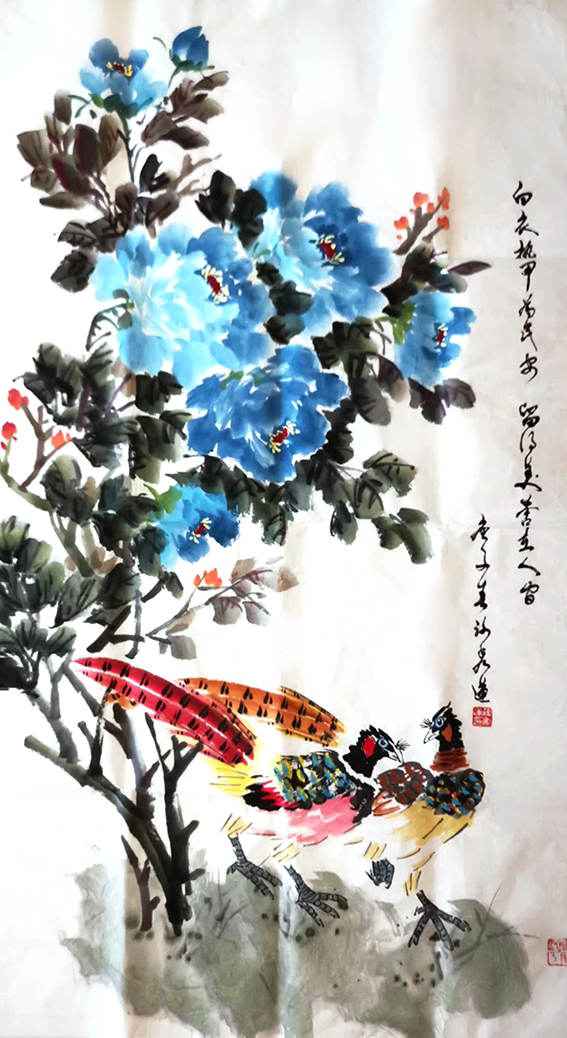 白衣执甲为民安 留得美誉在人间
庚子春